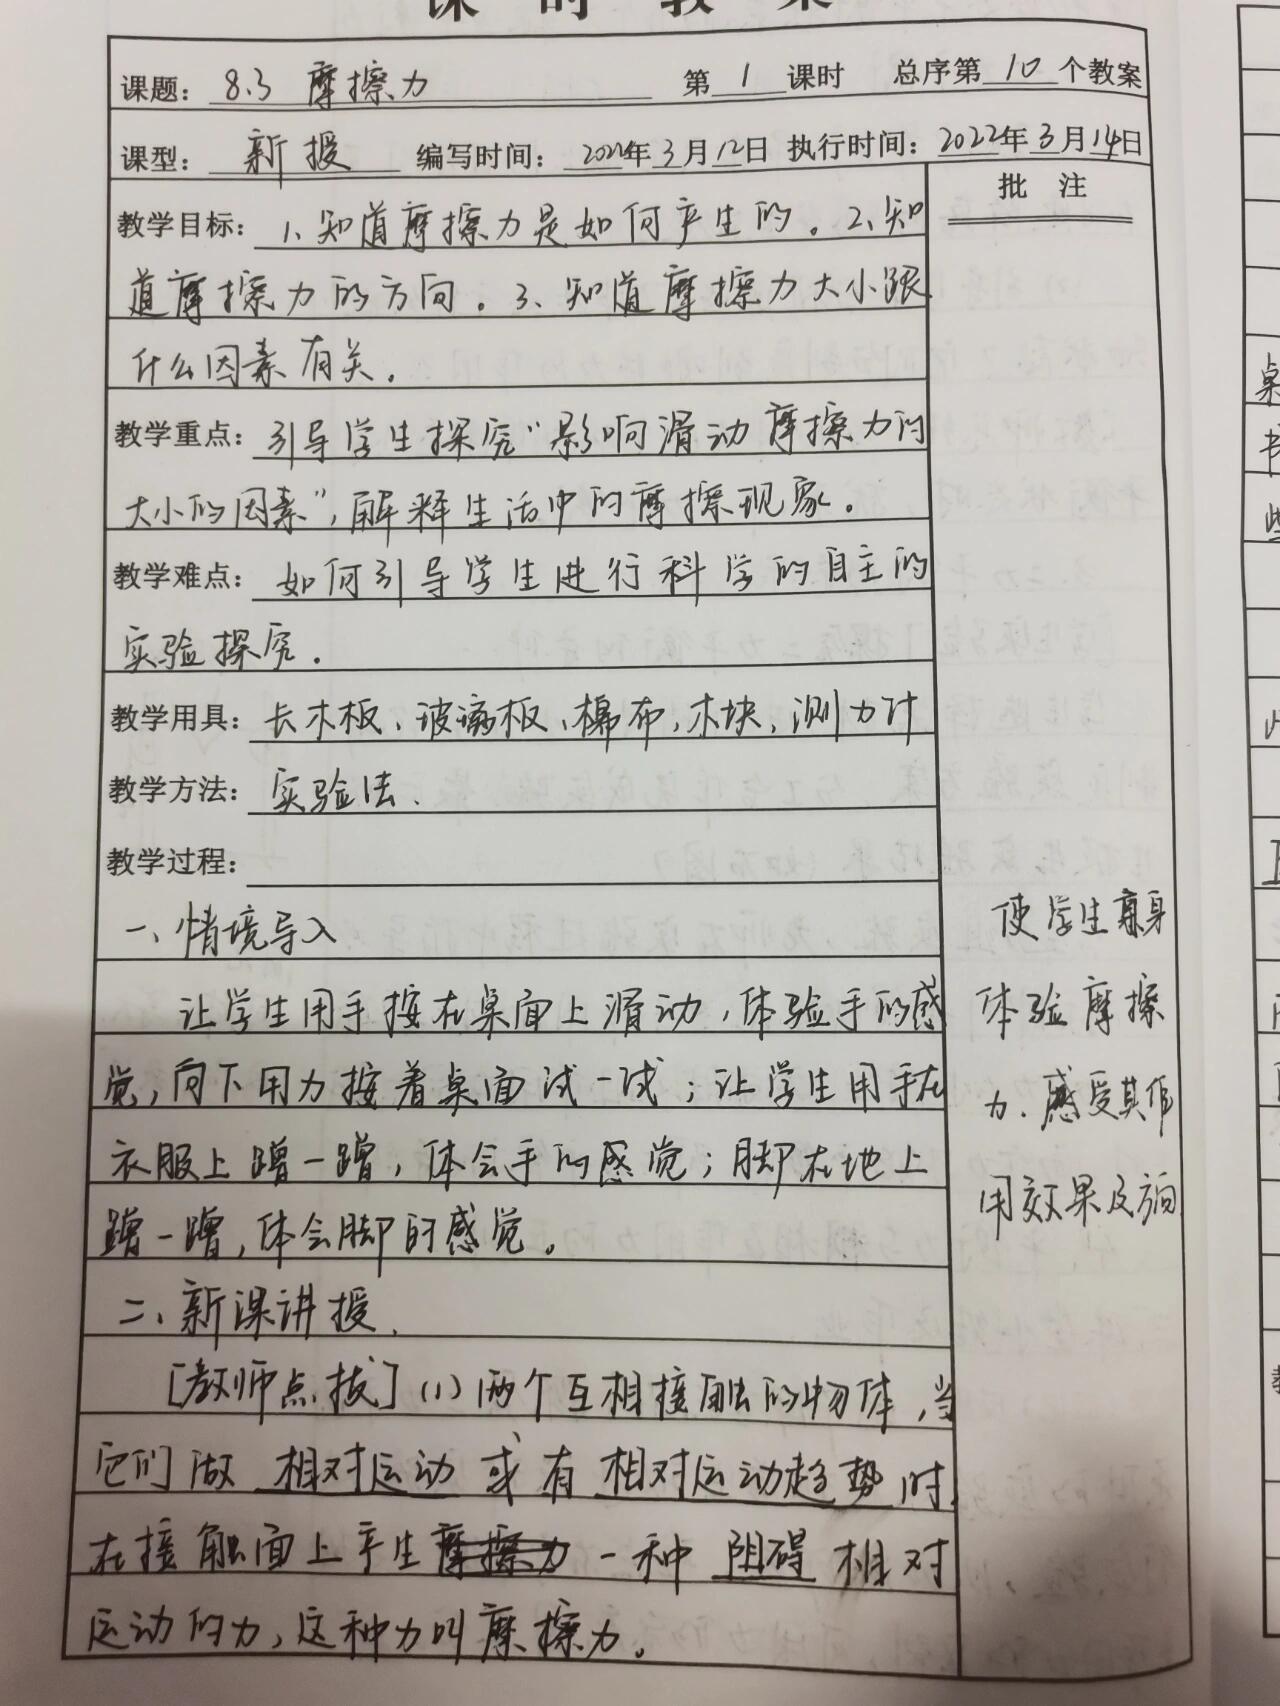 课时教案
课题：8.3 摩擦力 第1课时 总序第10个教案
课型：新授 编写时间：2022年3月12日 执行时间：2022年3月14日
批 注
教学目标：1、知道摩擦力是如何产生的。2、知
道摩擦力的方向。3、知道摩擦力大小跟
什么因素有关。
教学重点：引导学生探究“影响滑动摩擦力的
大小的因素”，解释生活中的摩擦现象。
教学难点：如何引导学生进行科学的自主的
实验探究.
教学用具：长木板、玻璃板、棉布、木块、测力计
教学方法：实验法.
教学过程：
一、情境导入
让学生用手按在桌面上滑动，体验手的感
觉，向下用力按着桌面试一试；让学生用手在
衣服上蹭一蹭，体会手的感觉；脚在地上
蹭一蹭，体会脚的感觉。
二、新课讲授.
[教师点拔] (1) 两个互相接触的物体，当
它们做 相对运动 或有 相对运动趋势 时，
在接触面上产生摩擦力一种 阻碍 相对
运动的力，这种力叫摩擦力。
使学生亲身
体验摩擦
力.感受其作
用效果及方向
桌
书
些